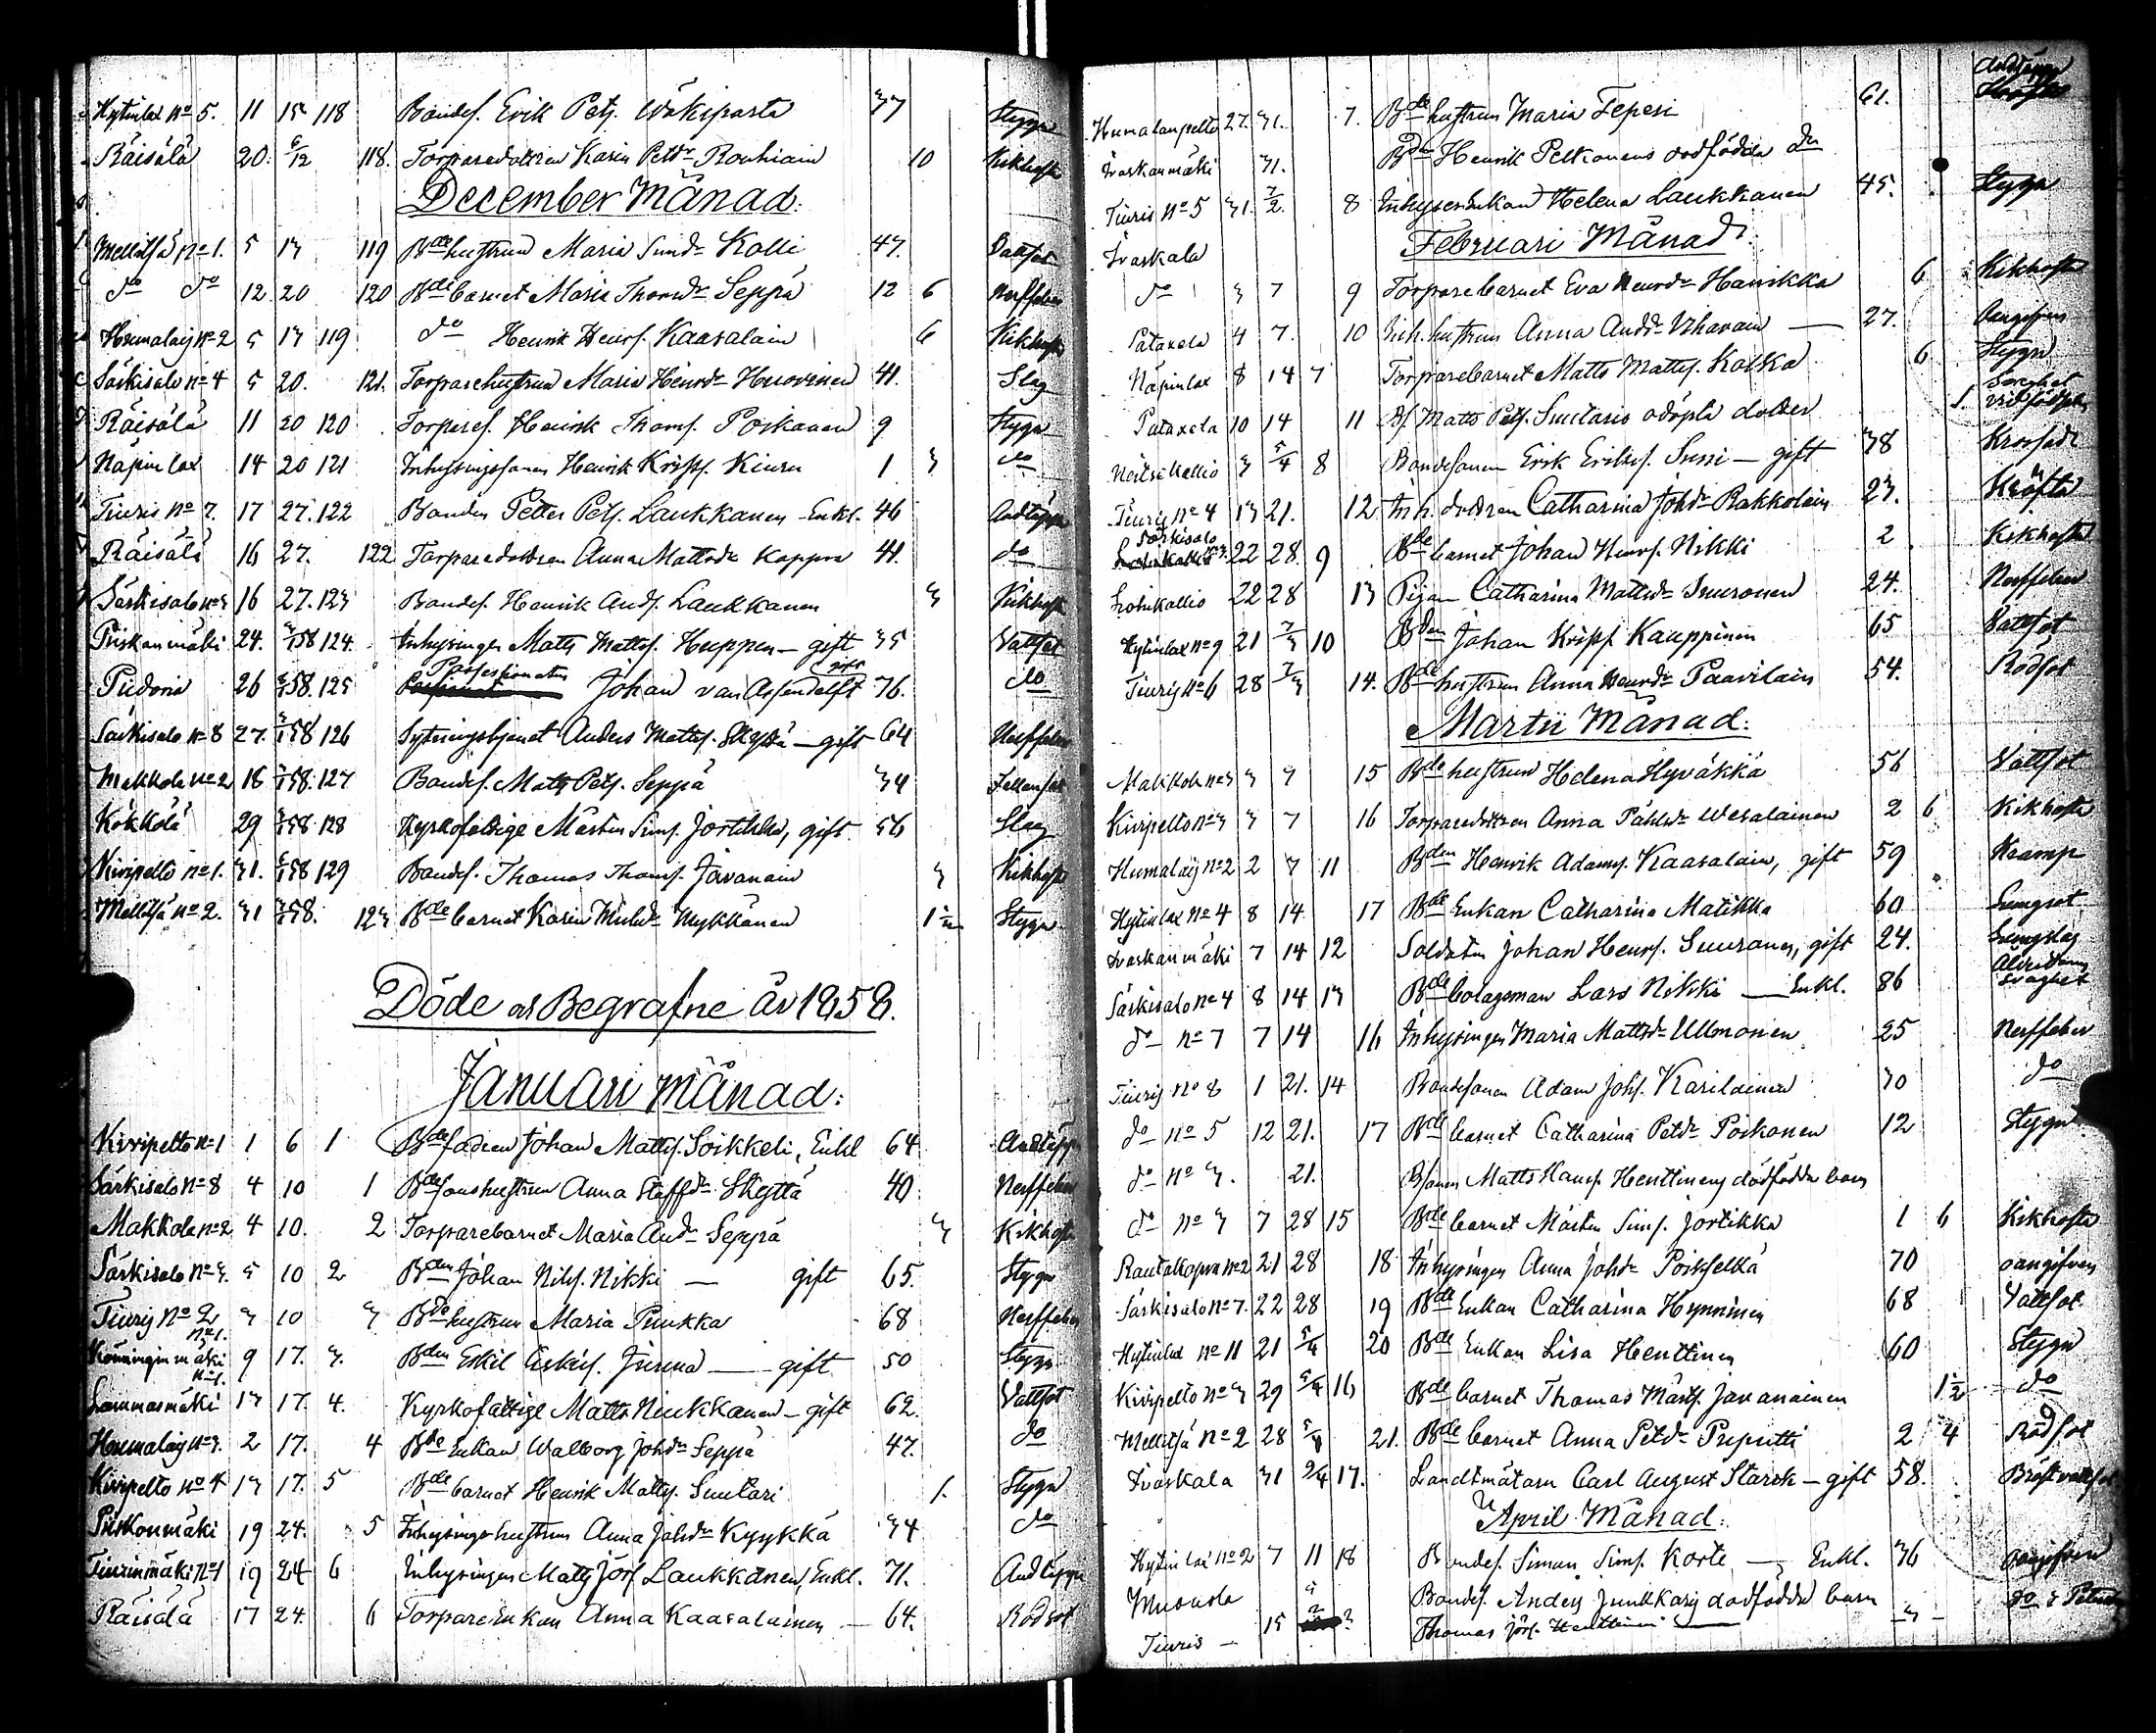 Hytinlax No 5. 11 15 118 Bondes. Erik Pets. Wäkiparta 37 Stygn
Räisälä 20. 6/12 118. Torparedottren Karin Petdr Rouhiain 10 Kikhosta
December Månad:
Mellitsä No 1. 5 13 119 Bde hustrun Maria Simdr Kolli 47. Vattsot
do do 12 20 120 Bde barnet Maria Thomdr Seppä 12 6 Nerffeber
Humalaij No 2 5 13 119 do Henrik Henrs. Kaasalain 6 Kikhosta
Särkisalo No 4 5 20. 121. Torparehustrun Maria Henrdr Huovinen 41. Slag
Räisälä 11 20 120 Torpares. Henrik Thoms. Poskanen 9 Stygn
Näpinlax 14 20 121 Inhysingssonen Henrik Krists. Kiuru 1 3 do
Tiuris No 7. 17 27. 122 Bonden Petter Pets. Laukkanen - Enkl. 46 Andtäppa
Räisälä 16 27. 122 Torparedottren Anna Mattsdr Kappra 41. do
Särkisalo No 3 16 27. 123 Bondes. Henrik Ands. Laukkanen 3 Kikhosta
Piiskanmäki 24. 3/1 58 124. Inhysingen Matts Mattss. Huppen - gift 35 Vattsot
Pudoria 26 3/1 58. 125 Possessionaten Johan van Assendelft gift 76. do
Särkisalo No 8 27. 3/1 58 126 Sytningshjonet Anders Mattss. Skyttä - gift 64 Nerffeber
Makkola No 2 16 3/1 58. 127 Bondes. Matts Pets. Seppä 34 Fallandsot
Kökkölä 29 3/1 58 128 Kyrkofattige Mårten Sims. Jortikka, gift 56 Slag
Kivipelto No 1. 31. 6/1 58 129 Bondes. Thomas Thoms. Javanain 3 Kikhosta
Mellitsä No 2. 31 3/1 58. 123 Bde barnet Karin Mikdr Mykkänen 1 1/2 Stygn
Döde och Begrafne år 1858.
Januari Månad:
Kivipelto No 1 1 6 1 Bde fadren Johan Mattss. Soikkeli, Enkl 64 Andtäppa
Särkisalo No 8 4 10 1 Bde sonshustrun Anna Staffdr Skyttä 40. Nerffeber
Makkola No 2 4 10. 2 Torparebarnet Maria Anddr Seppä 3 Kikhosta
Särkisalo No 3. 5 10 2 Bden Johan Nils. Nikki — gift 65. Stygn
Tiurij No 2 3 10 3 Bde hustrun Maria Puukka 68 Nerffeber
Könninginmäki No 1. 9 17. 3. Bden Eskil Eskils. Jurma — gift 50 Stygn
Lammasmäki No 1. 13 17. 4. Kyrkofattige Matts Niukkanen - gift 62. Vattsot
Humalaij No 3. 2 17. 4 Bde Enkan Walborg Johdr Seppä 47. do
Kivipelto No 4 13 17. 5 Bde barnet Henrik Mattss. Suutari 1. Stygn
Piiskonmäki 19 24. 5 Inhysingshustrun Anna Johdr Kyykkä 34 do
Tiurinmäki No 1 19 24 6 Inhysingen Matts Jörs. Laukkanen, Enkl. 71. Andtäppa
Räisälä 17 24. 6 Torpareenkan Anna Kaasalainen — 64. Rödsot
Andtäppa
Humalanpelto 27. 31. 7. Bde hustrun Maria Tepesi 61.
Ivaskanmäki 31. Bden Henrik Pelkonens dödfödda dr
Tiuris No 5 31. 7/2. 8 Inhysesenkan Helena Laukkanen 45. Stygn
Februari Månad:
Ivaskala
do 3 7 9 Torparebarnet Eva Henrdr Hanikka 6 Kikhosta
Pataxela 4 7. 10 Inh. hustrun Anna Anddr Uhavain — 27. Oangifven
Näpinlax 8 14 7 Torparebarnet Matts Mattss. Kolka 6 Stygn
Pataxela 10 14 11 Bs. Matts Pets. Suutaris odöpta dotter 1. Svaghet vid födseln
Neitsekallio 3 5/4 8 Bondesonen Erik Eriks. Sussi - gift 38
Tiurij No 4 13 21. 12 Inh. dottren Catharina Johdr Rakkolain 23. Kräfta
Särkisalo No 3. 22 28. 9 Bde barnet Johan Henrs. Nikki 2 Kikhosta
Lohikallio 22 28 13 Pigan Catharina Mattsdr Inuronen 24. Nerffeber
Hytinlax No 9 21 7/3 10 Bden Johan Krists Kauppinen 65 Vattsot
Tiurij No 6 28 7/3 14. Bde hustrun Anna Henrdr Paavilain 54. Rödsot
Martii Månad:
Makkola No 3 3 7 15 Bde hustrun Helena Hyväkkä 56 Vattsot
Kivipelto No 3 3 7 16 Torparedottren Anna Påhlsdr Wesalainen 2 6 Kikhosta
Humalaij No 2 2 7 11 Bden Henrik Adams. Kaasalain, gift 59 Kramp
Hytinlax No 4 8 14 17 Bde Enkan Catharina Matikka 60 Lungsot
Ivaskanmäki 7 14 12 Soldaten Johan Henrs. Suuronen, gift 24. Lungslag
Särkisalo No 4 8 14 13 Bde bolagsman Lars Nikki — Enkl. 86 Ålderdoms Svaghet
do No 7 7 14 16 Inhysingen Maria Mattsdr Ullmonen 25 Nerffeber
Tiurij No 8 1 21. 14 Bondesonen Adam Johs. Karilainen 30 do
do No 5 12 21. 17 Bde barnet Catharina Petdr Poskonen 12 Stygn
do No 3. 21. Bsonen Matts Hans. Henttinens dödfödda barn
do No 3 7 28 15 Bde barnet Mårten Sims. Jortikka 1 6 Kikhosta
Rautakorpia No 2 21 28 18 Inhysingen Anna Johdr Poikselkä 70 oangifven
Särkisalo No 7. 22 28 19 Bde Enkan Catharina Hynninen 68 Vattsot
Hytinlax No 11 21 5/4 20 Bde Enkan Lisa Henttinen 60 Stygn
Kivipelto No 3 29 5/4 16 Bde barnet Thomas Mårts. Javanainen 1 1/2 do
Mellitsä No 2 28 5/4 21. Bde barnet Anna Petdr Puputti 2 4 Rödsot
Ivaskala 31 9/4 17. Landtmätarn Carl August Starck - gift 58. Bröstvattsot
April Månad:
Hytinlax No 2 7 11 18 Bondes. Simon Sims. Korte — Enkl. 36 oangifven
Musakla Bondes. Anders Junkkarij dödfödda barn
Tiuris — 15 Thomas Jörs. Henttinen — 3 —